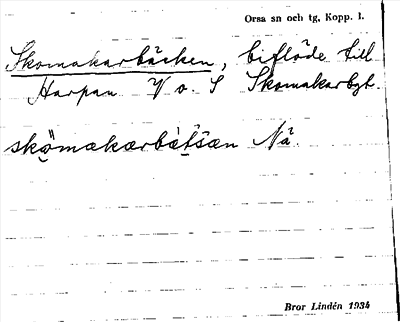 Orsa sn och tg, Kopp. l.
Skomakarbäcken, biflöde till
Harpan V o. S Skomakarbyt.
skömakærbätsæn Nä.
Bror Lindén 1934